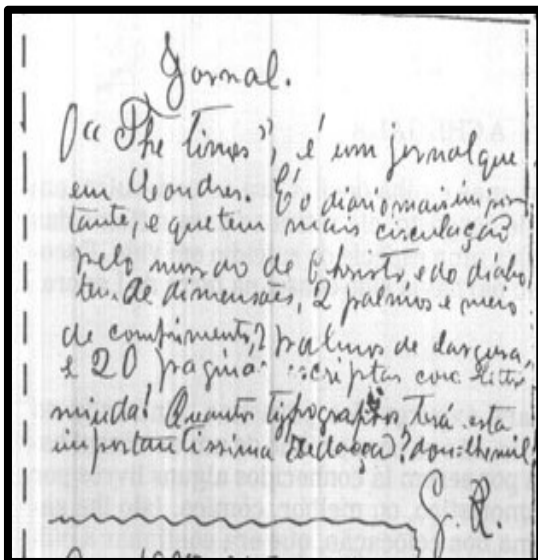 Jornal.
O "The times", é um jornal que
em Londres. É o diario mais impor
tante, e que tem mais circulação
pelo mundo de Christo, e do diabo
tem de dimensões, 2 palmos e meio
de comprimento, 2 palmos de largura,
e 20 paginas escriptas com lettra
miuda! Quantos typographos, terá esta
importantissima redacção? dou-lhe mil
G. R.